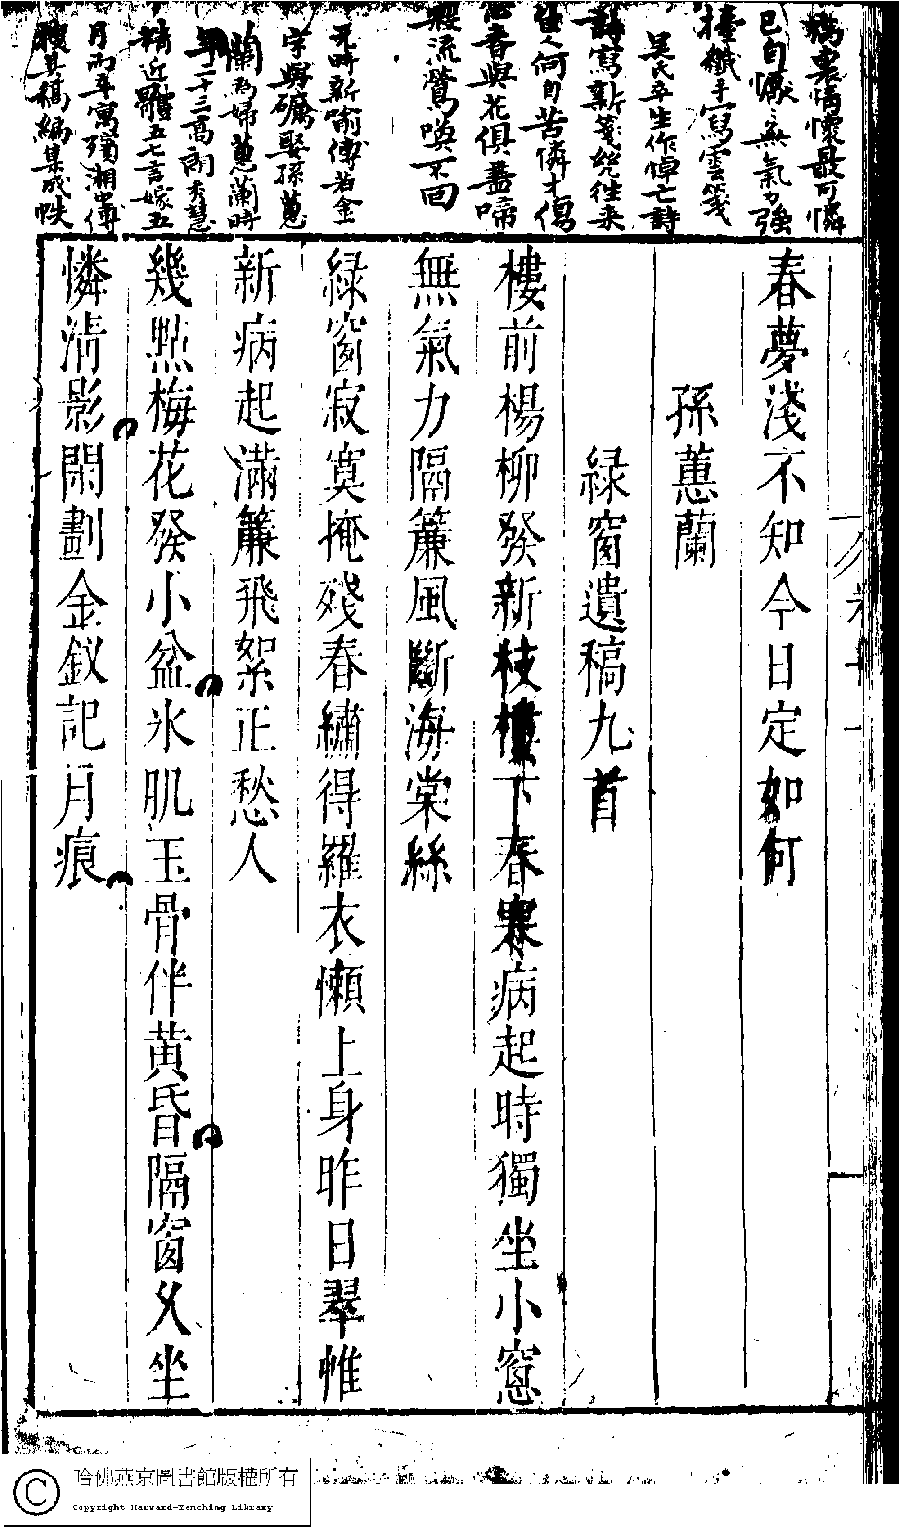 楊裏情懷最可憐
已自慷無氣力強
擡纖手寫雲箋
吳氏卒生作悼亡詩
寫新箋絕往來
何自苦憐才傷
香與花俱盡啼
流鶯喚不回
元時新喻傅若金
字與礪娶孫蕙
蘭為婦蕙蘭時
年二十三高朗秀慧
精近體五七言嫁五
月而卒寓殯湘中傅
搜其稿編集成帙
春夢淺不知今日定如何
孫蕙蘭
綠窗遺稿九首
樓前楊柳發新枝樓下春寒病起時獨坐小窗
無氣力隔簾風斷海棠絲
綠窗寂寞掩殘春繡得羅衣懶上身昨日翠帷
新病起滿簾飛絮正愁人
幾點梅花發小盆冰肌玉骨伴黃昏隔窗久坐
憐清影閑劃金釵記月痕
哈佛燕京圖書館版權所有
Copyright Harvard-Yenching Library